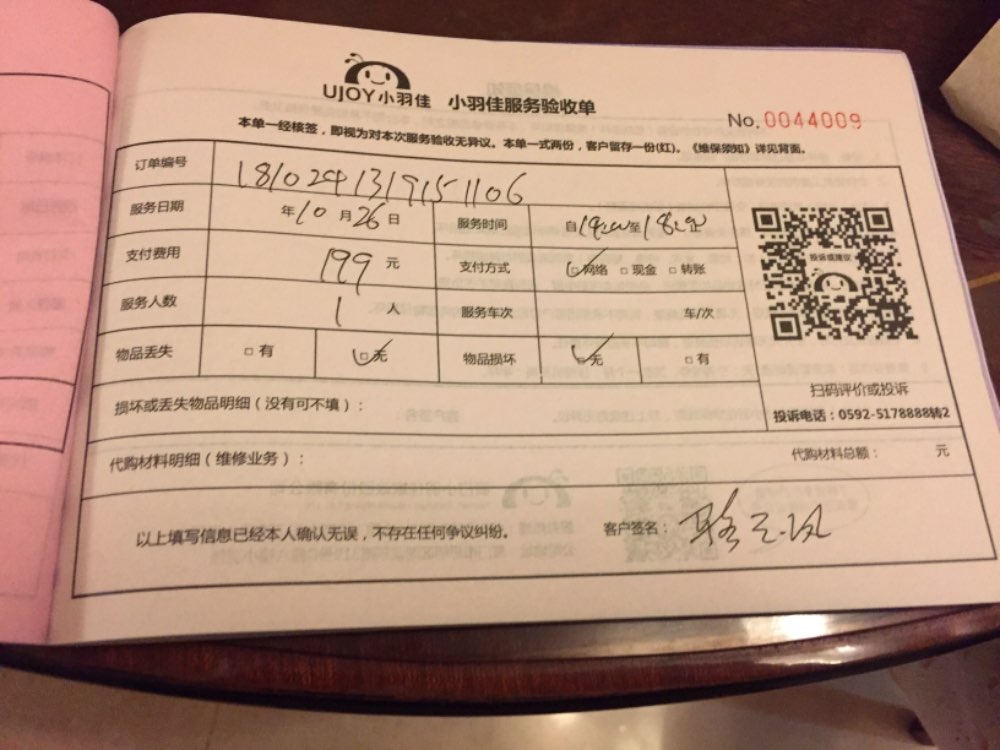 UJOY小羽佳 小羽佳服务验收单
No.0044009
本单一经核签，即视为对本次服务验收无异议。本单一式两份，客户留存一份(红)。《维保须知》详见背面。
订单编号 1810241319151106
服务日期 年10月26日 服务时间 自14:00至18:00
支付费用 199 元 支付方式 网络 现金 转账
投诉或建议
服务人数 1 人 服务车次 车/次
物品丢失 有 无 物品损坏 无 有
扫码评价或投诉
投诉电话：0592-5178888转2
损坏或丢失物品明细（没有可不填）：
代购材料明细（维修业务）： 代购材料总额： 元
以上填写信息已经本人确认无误，不存在任何争议纠纷。 客户签名：